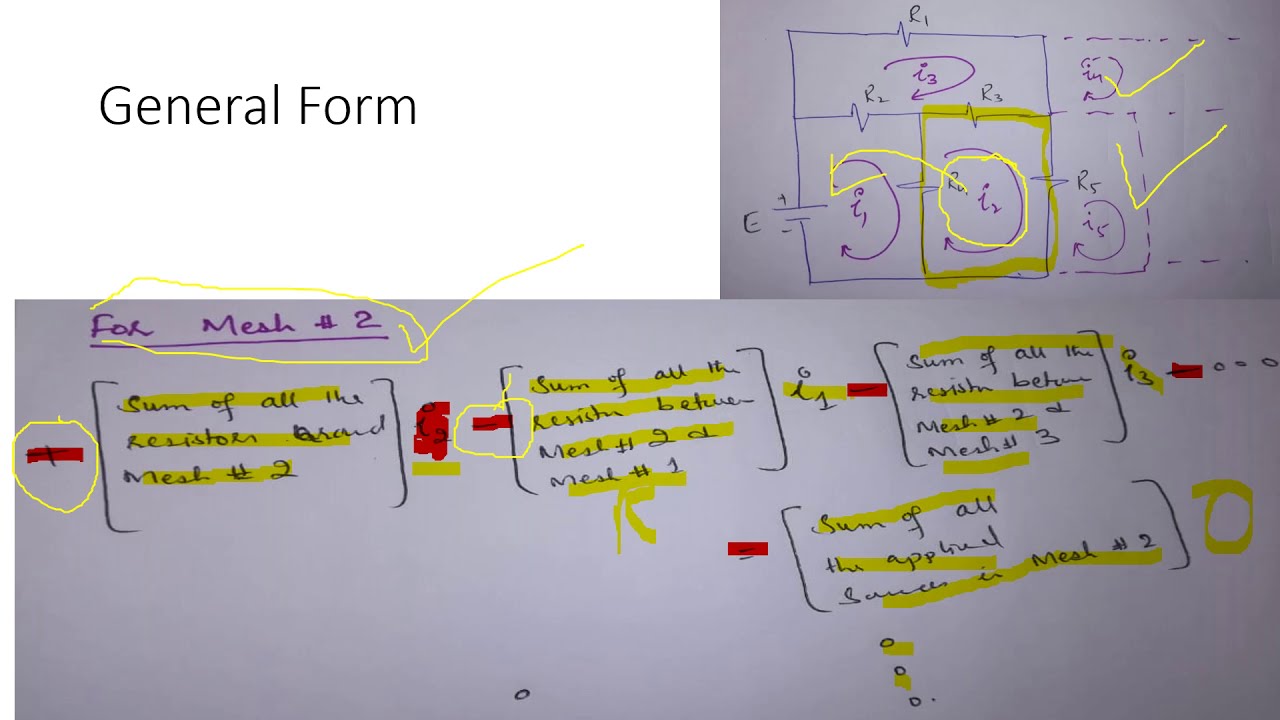 General Form
R1
i3
i4
R2
R3
+
E
-
i1
i2
R5
i5
For Mesh # 2
+ [Sum of all the
resistors around
Mesh # 2] i2
- [Sum of all the
resistr between
Mesh # 2 &
Mesh # 1] i1
- [Sum of all the
resistr between
Mesh # 2 &
Mesh # 3] i3 - 0 = 0
= [Sum of all
the applied
Sources in Mesh # 2] 0